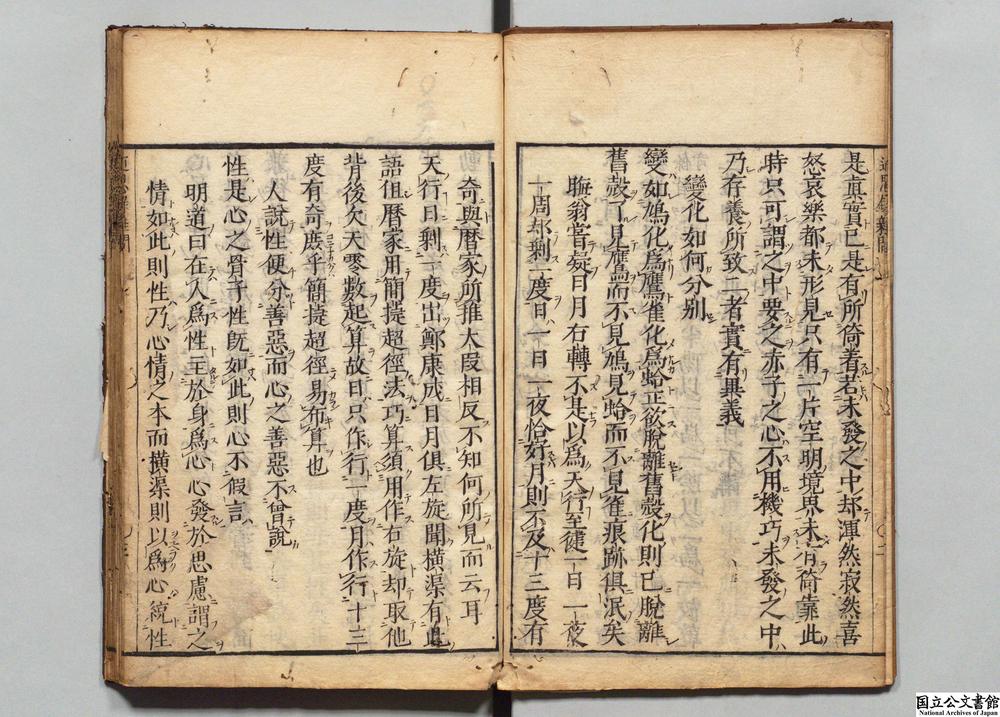 是真實已是有所倚著若未發之中却渾然寂然喜
怒哀樂都未形見只有一片空明境界未有倚靠此
時只可謂之中要之赤子之心不用機巧未發之中
乃存養所致二者實有異義
變化如何分別
變如鳩化為鷹雀化為蛤正欲脫離舊殼化則已脫離
舊殼了見鷹而不見鳩見蛤而不見雀痕跡俱泯矣
晦翁嘗疑日月右轉不是以為天行至健一日一夜
一周却剩一度日一日一夜恰好月則不及十三度有
奇與曆家所推大段相反不知何所見而云耳
天行日剩一度出鄭康成日月俱左旋聞橫渠有此
語但曆家用簡㨗超徑法巧算須用作右旋却取他
背後欠天零數起算故日只作行一度月作行十三
度有奇庶乎簡㨗超徑易布算也
人說性便分善惡而心之善惡不曾說
性是心之骨子性旣如此則心不假言
明道曰在人為性主於身為心心發於思慮謂之
情如此則性乃心情之本而橫渠則以為心統性
国立公文書館
National Archives of Japan